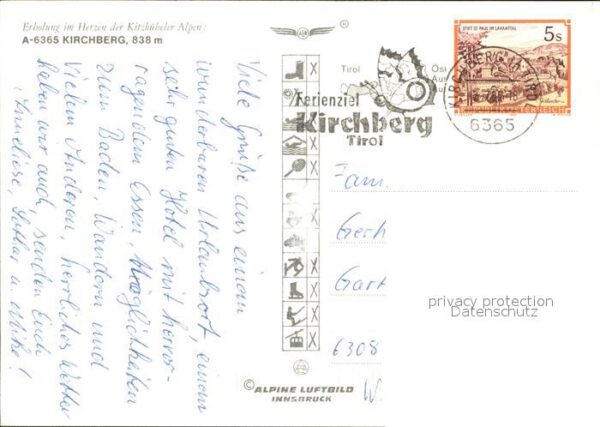 Erholung im Herzen der Kitzbüheler Alpen:
A-6365 KIRCHBERG, 838 m
Viele Grüße aus einem
wunderbaren Urlaubsort, einem
sehr guten Hotel mit hervor-
ragendem Essen, Möglichkeiten
zum Baden, Wandern und
vielem Anderen, herrliches Wetter
haben wir auch, senden Euch
Anneliese, Lothar u. Mike!
©
Tirol
Ferienziel
Kirchberg
Tirol
5s
STIFT ST. PAUL IM LAVANTTAL
REPUBLIK ÖSTERREICH
6365
Fam.
Gerh
Gart
6308
W.
privacy protection
Datenschutz
© ALPINE LUFTBILD
INNSBRUCK